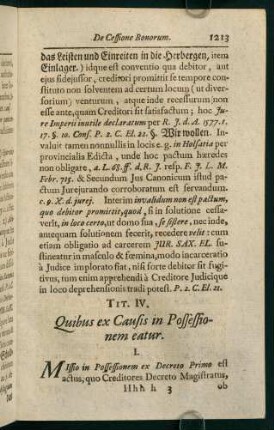 De Cessione Bonorum. 1213
das Leisten und Einreiten in die Herbergen, item
Einlager.) idque est conventio qua debitor, aut
ejus fidejussor, creditori promittit se tempore con-
stituto non solventem ad certum locum (ut diver-
sorium) venturum, atque inde recessurum non
esse ante, quam Creditori sit satisfactum; hoc Ju-
re Imperii inutile declaratum per R. J. d. A. 1577. t.
17. §. 10. Conf. P. 2. C. El. 22. §. Wir wollen. In-
valuit tamen nonnullis in locis e. g. in Holsatia per
provincialia Edicta, unde hoc pactum haeredes
non obligare, a. L. 83. ff. d. R. J. resp. F. J. L. M.
Febr. 705. & Secundum Jus Canonicum istud pa-
ctum Jurejurando corroboratum est servandum.
c. 9. X. d. jurej. Interim invalidum non est pactum,
quo debitor promittit, quod, si in solutione cessa-
verit, in loco certo, ut domo sua, se sistere, nec inde,
antequam solutionem fecerit, recedere velit: cum
etiam obligatio ad carcerem JUR. SAX. EL. su-
stineatur in masculo & foemina, modo incarceratio
à Judice implorato fiat, nisi forte debitor sit fugi-
tivus, tum enim apprehendi à Creditore Judicique
in loco deprehensionis tradi potest. P. 2. C. El. 22.
TIT. IV.
Quibus ex Causis in Possessio-
nem eatur.
I.
MIssio in Possessionem ex Decreto Primo est
actus, quo Creditores Decreto Magistratus,
Hhh h 3 ob